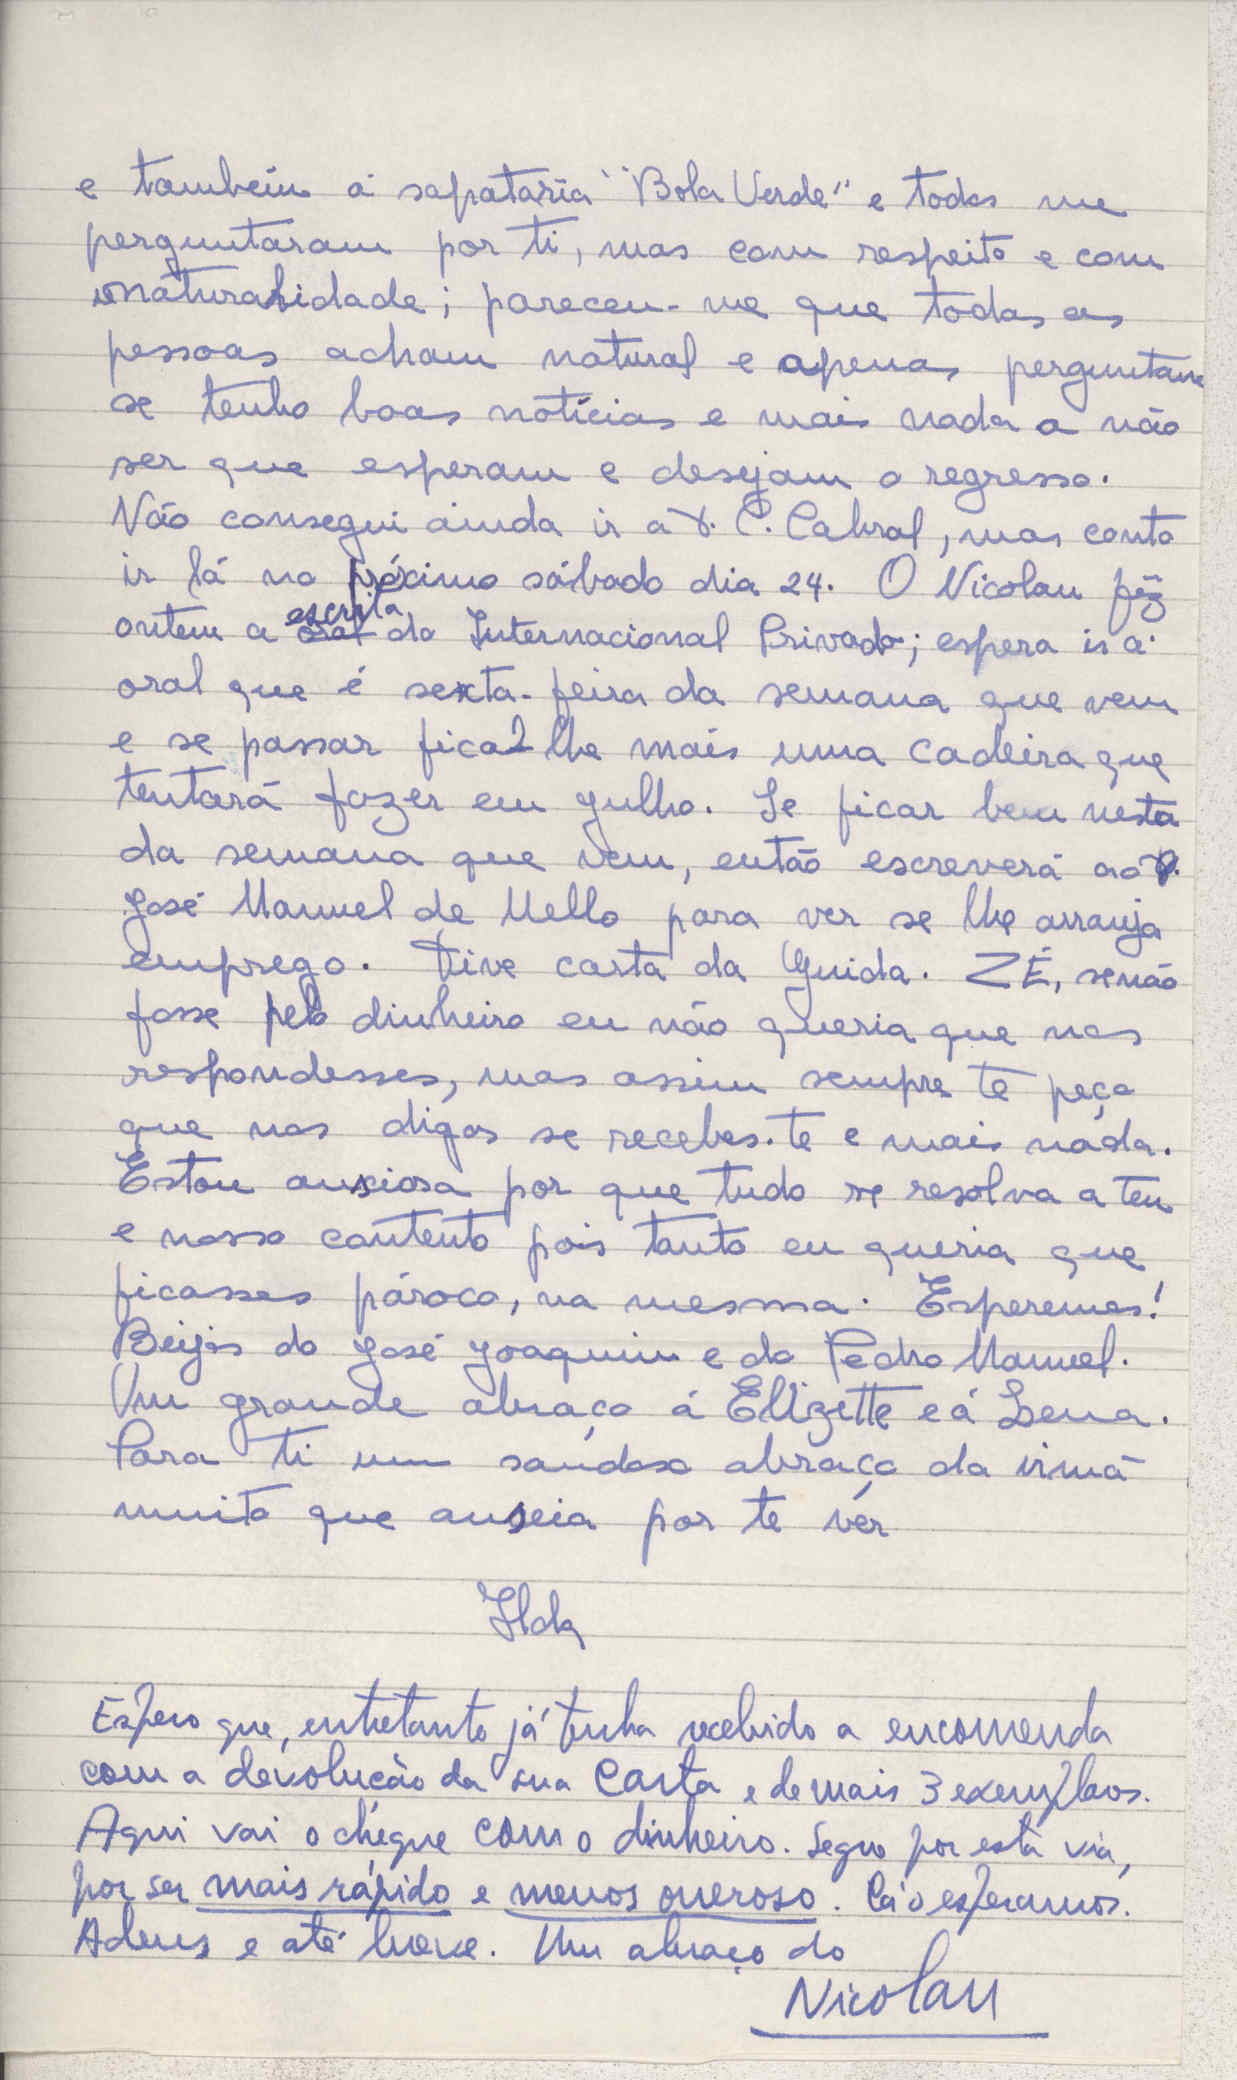 e também á sapataria "Bola Verde" e todos me
perguntaram por ti, mas com respeito e com
naturalidade; pareceu-me que todas as
pessoas acham natural e apenas perguntam
se tenho boas notícias e mais nada a não
ser que esperam e desejam o regresso.
Não consegui ainda ir a D. C. Cabral, mas conto
ir lá no próximo sábado dia 24. O Nicolau fêz
ontem a escrita do Internacional Privado; espera ir á
oral que é sexta-feira da semana que vem
e se passar fica-lhe mais uma cadeira que
tentará fazer em julho. Se ficar bem nesta
da semana que vem, então escreverá ao D.
José Manuel de Mello para ver se lhe arranja
emprego. Tive carta da Guida. ZÉ, se não
fosse pelo dinheiro eu não queria que nos
respondesses, mas assim sempre te peço
que nos digas se recebes-te e mais nada.
Estou ansiosa por que tudo se resolva a teu
e nosso contento pois tanto eu queria que
ficasses pároco, na mesma. Esperemos!
Beijos do José Joaquim e do Pedro Manuel.
Um grande abraço á Elizette e á Lena.
Para ti um saudoso abraço da irmã
muito que anseia por te vêr
Ilda
Espero que, entretanto já tenha recebido a encomenda
com a devolução da sua Carta e de mais 3 exemplares.
Aqui vai o chéque com o dinheiro. Segue por esta via,
por ser mais rápido e menos oneroso. Cá o esperamos.
Adeus e até breve. Um abraço do
Nicolau